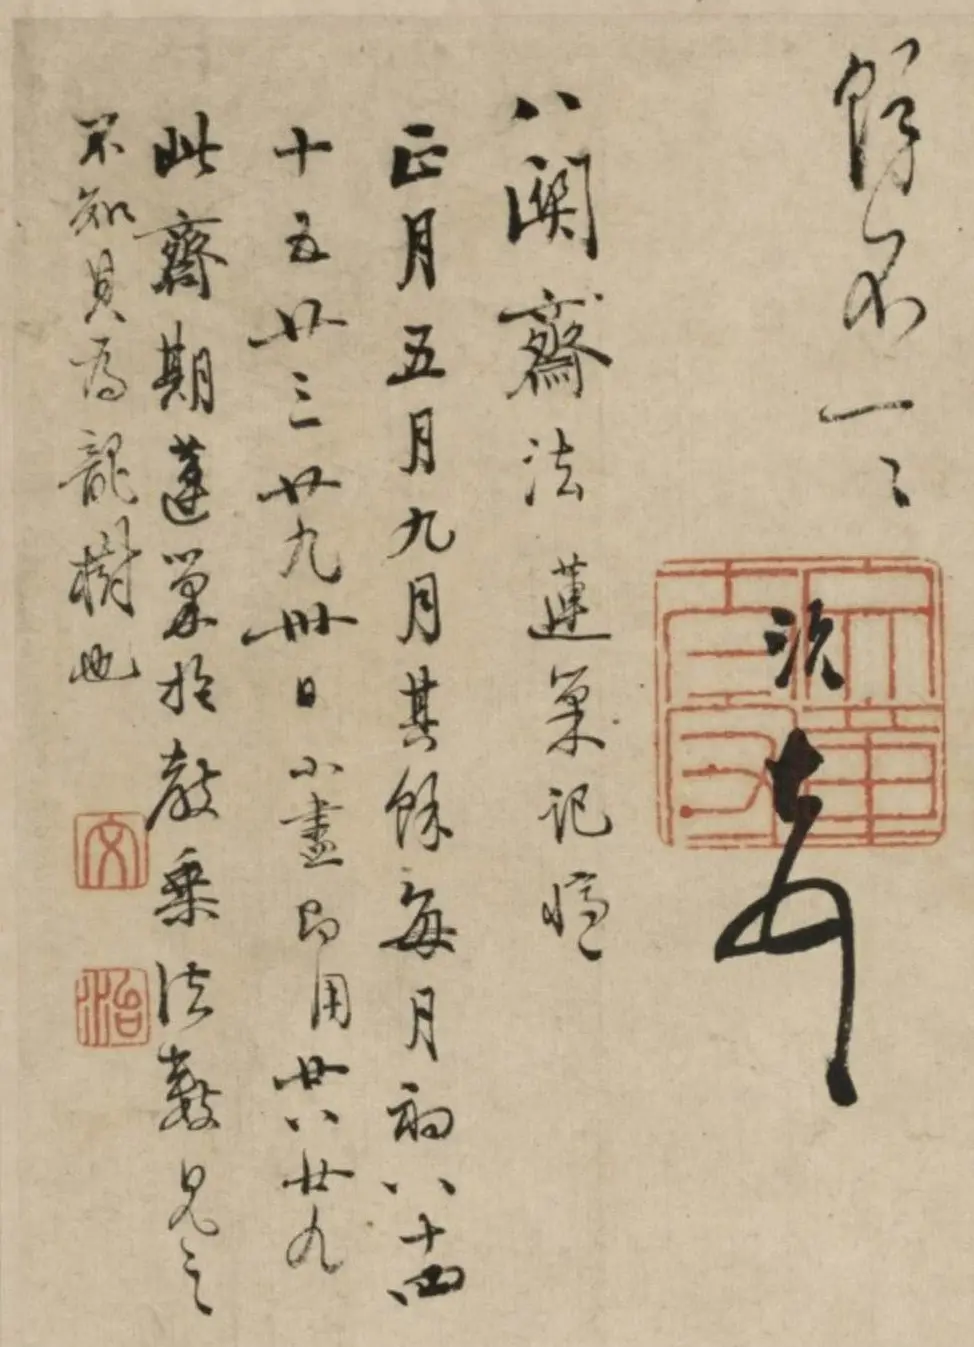 餘不一一
頓首
八關齋法 蓮巢記憶
正月五月九月其餘每月初八十四
十五廿三廿九卅日小盡即用廿八廿九
此齋期蓮巢於教乘法數見之
不知具為龍樹也
文
治